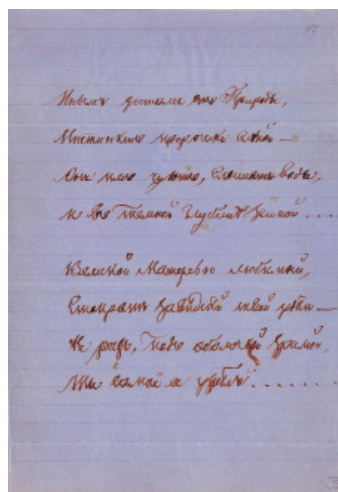 Инымъ достался отъ Природы,
Инстинктъ пророчески слѣпой —
Они имъ чуютъ, слышатъ воды,
И въ темной глубинѣ земной....
Великой Матерью любимый,
Стократъ завиднѣй твой удѣлъ —
Не разъ, подъ оболочкой зримой,
Ты самое узрѣлъ.......